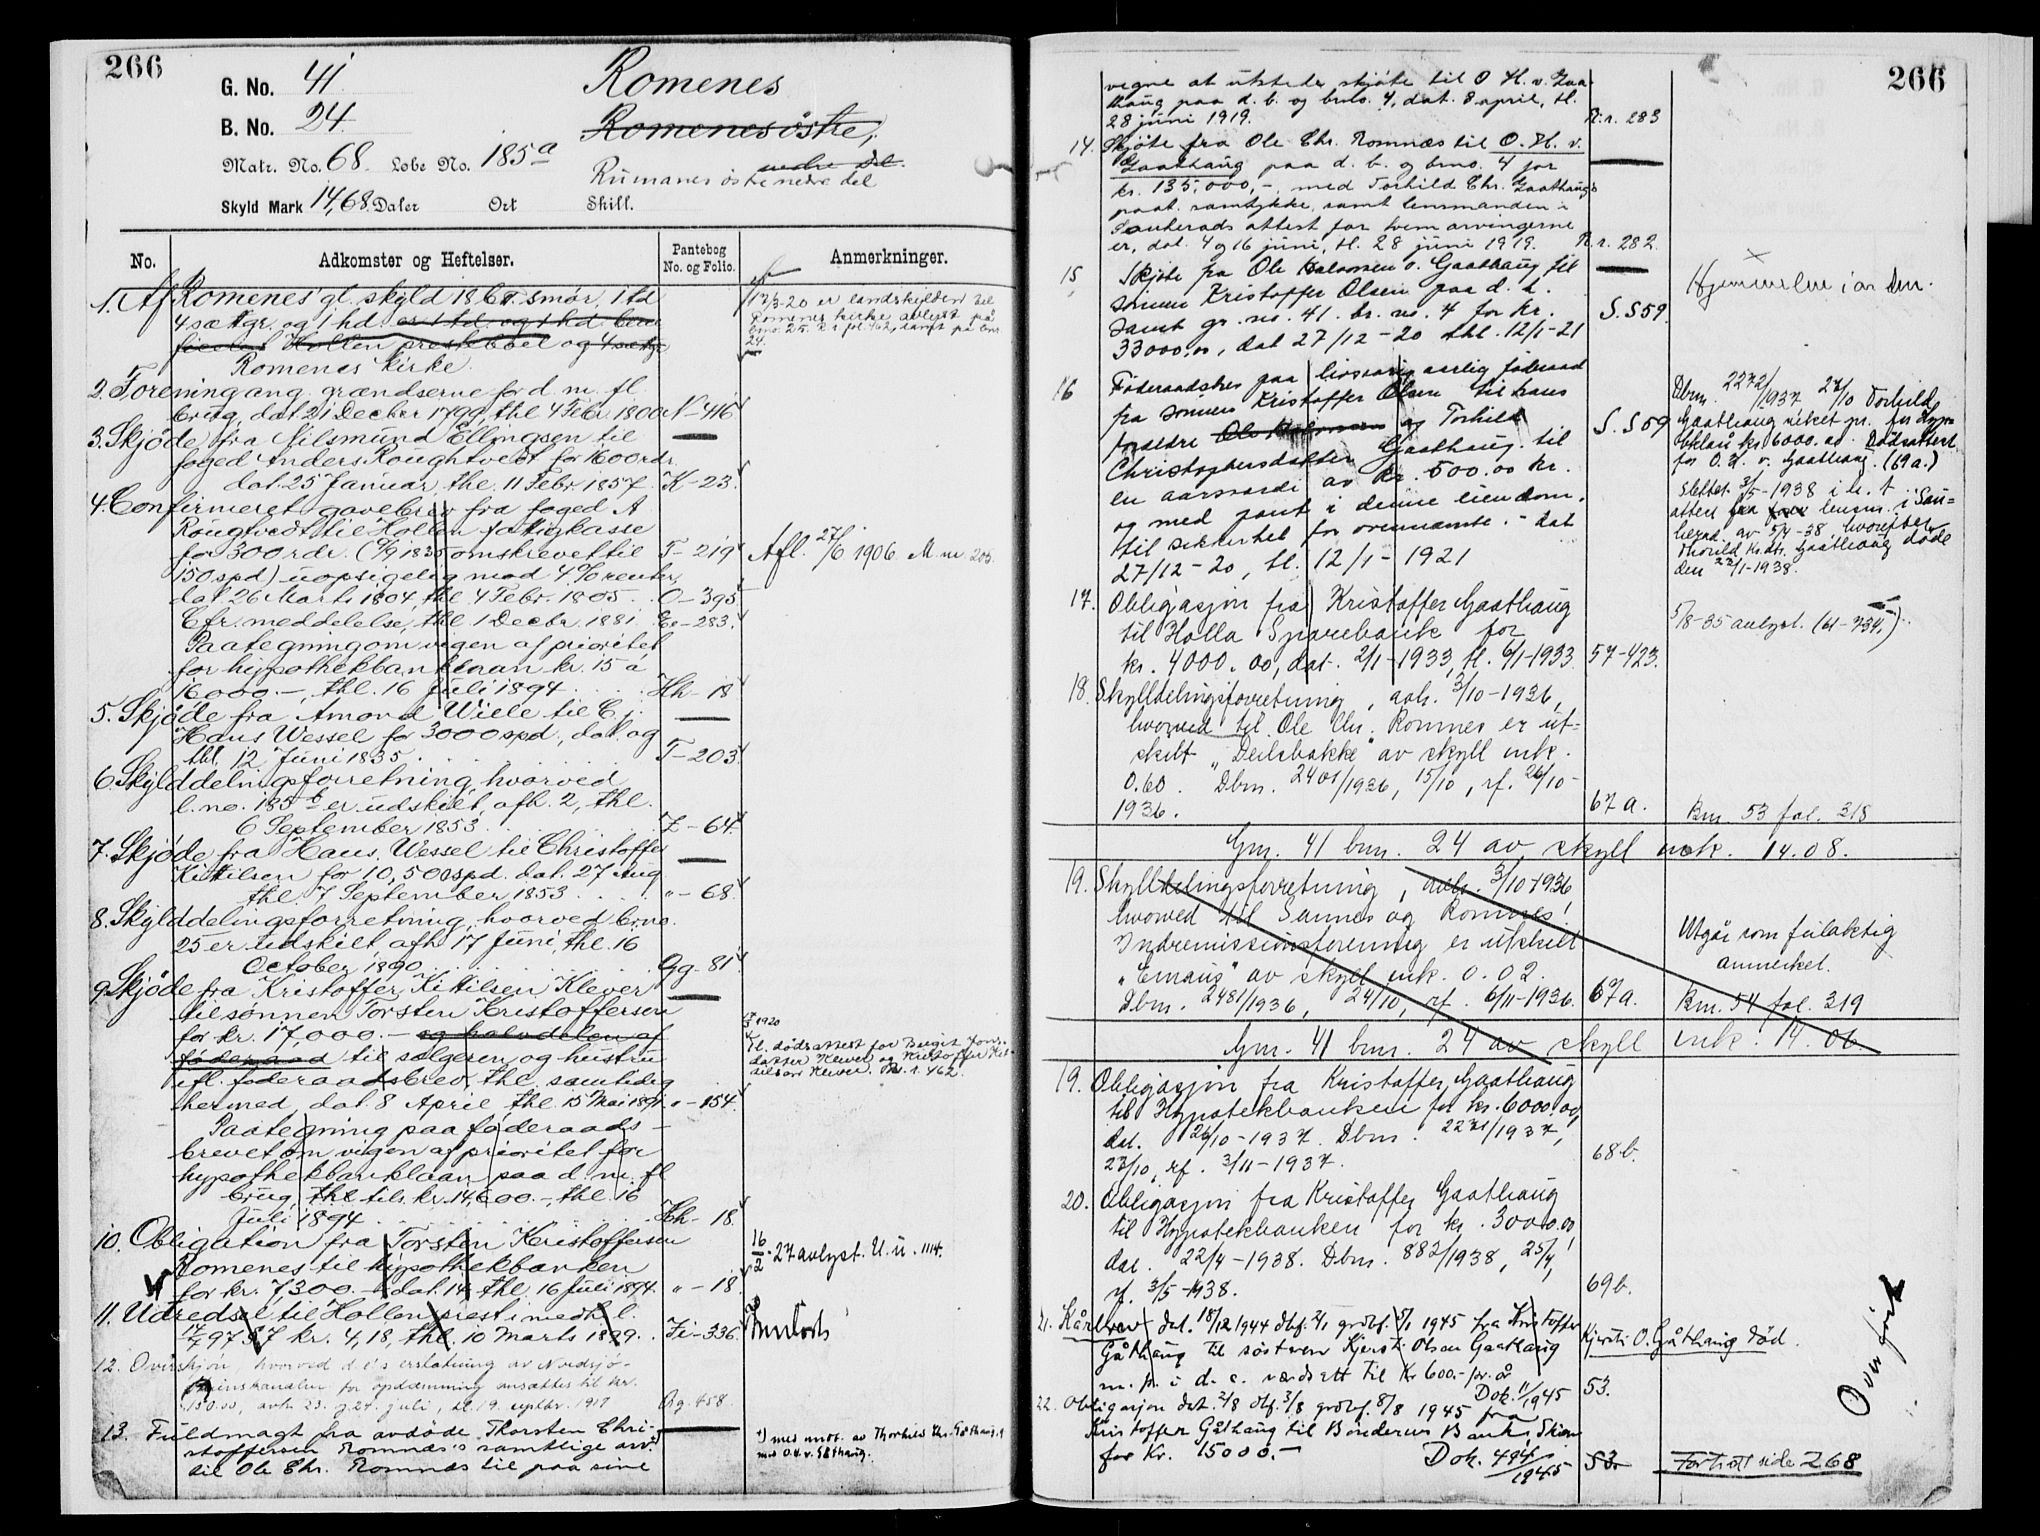 266
G. No. 41
B. No. 24.
Matr. No. 68. Løbe No. 185a
Skyld Mark 14,68. Daler Ort Skill.
Romenes
Romenes östre,
nedre del.
Rumanes östre nedre del
No.
Adkomster og Heftelser.
Pantebog No. og Folio.
Anmerkninger.
1. Af Romenes' gl. skyld 18 smør, 1 td
4 sættgr. og 1 hd. er 1 td. og 1 hd. bene
ficeret Hollen prestebol og 4 sættgr
Romenes Kirke.
17/3-20 er landskylden til
Romenes kirke avlyst på
bno. 25. R r fol. 462, samt på bnr
24.
2. Forening ang. grændserne for d. m. fl.
brug, dat. 21 Decber 1799, thl. 4 Febr. 1800 N-416
3. Skjøde fra Nilsmund Ellingsen til
foged Anders Roughtvedt for 1600 rdr.
dat. 25 Januar, thl. 11 Febr. 1857. K-23.
4. Confirmeret gavebrev fra foged A
Rougtvedt til Hollen fattigkasse
for 300 rdr. (9/9 1835 omskrevet til T-219
150 spd) uopsigelig mod 4 % renter,
dat. 26 Marts 1804, thl. 4 Febr. 1805. O-395
Cfr. meddelelse, thl. 1 Decbr. 1881. Ee-283.
Paategning om vigen af prioritet
for hypothekbanklaan kr. 15 a
16000.-, thl. 16 Juli 1894 Hh-18
Afl. 27/6 1906. M nr. 205.
5. Skjøde fra Amond Wiele til Cj.
Hans Wessel for 3000 spd., dat. og
thl. 12 Juni 1835. T-203
6. Skylddelingsforretning, hvorved
l. no. 185 b er udskilt, afh. 2, thl.
6 September 1853 Z-64.
7. Skjøde fra Hans Wessel til Christoffer
Kittilsen for 10,500 spd. dat. 27 Aug
thl. 7 September 1853. "-68.
8. Skylddelingsforretning, hvorved brno.
25 er udskilt, afh. 17 Juni, thl. 16
October 1890 Gg-81
9. Skjøde fra Kristoffer Kittilsen Klever
til sønnen Torsten Kristoffersen
for kr. 17,000.- og halvdelen af
føderaad til sælgeren og hustru
ifl. føderaadsbrev, thl. samtidig
hermed, dat. 8 April, thl. 15 Mai 1891. "-154.
Tl. dødsattest for Birgit Jons-
datter Klever og Kristoffer Kit-
tilsen Klever. R. r. 462.
Paategning paa føderaads-
brevet om vigen af prioritet for
hypothekbanklaan paa d. m. fl.
brug, thl. tils. kr. 14,600.-, thl. 16
Juli 1894 Hh-18.
10. Obligation fra Torsten Kristoffersen
Romenes til hypothekbanken
for kr. 7,300.- dat. 14, thl. 16 Juli 1894. "-18.
16/2-27 avlyst. U. u. 1114.
11. Udredsel til Hollen prest i medh. l.
17/7 97 § 7 kr. 4,18, thl. 10 Marts 1899. Ii-336.
12. Overskjøn, hvorved d. e's erstatning av Nordsjø-
kanalen for opdæmning ansættes til kr.
150.00, avh. 23. og 24. juli, tl. 19. septbr. 1917 Qq. 458.
13. Fuldmagt fra avdøde Thorsten Chri-
stoffersen Romnæs's samtlige arv.
til Ole Chr. Romnæs til paa sine
266
vegne at utstede skjøte til O. H. v. Gaa-
thaug paa d. b. og brno. 4, dat. 8 april, tl.
28 juni 1919. R. r. 283
14. Skjøte fra Ole Chr. Romnæs til O. H. v.
Gaathaug paa d. b. og brno. 4 for
kr. 135.000,-, med Torhild Chr. Gaathaugs
paat. samtykke, samt lensmanden i
Sauherads attest for hvem arvingerne
er, dat. 4 og 16 juni, tl. 28 juni 1919. R. r. 282.
15. Skjøte fra Ole Halvorsen v. Gaathaug til
sønnen Kristoffer Olsen paa d. b.
samt gr. no. 41. br. no. 4 for kr.
33000,00, dat 27/12-20 thl. 12/1-21
S. S 59.
Hjemmelen i orden.
16 Føderaadsbrev paa livsvarig aarlig føderaad
fra sønnen Kristoffer Olsen til hans
foreldre Ole Halvorsen og Torhild
Christophersdatter Gaathaug til
en aarsværdi av kr. 500.00 kr.
og med pant i denne eiendom.
til sikkerhet for ovennævnte. - dat
27/12-20, tl. 12/1-1921
S. S 59
Dbnr. 2272/1937 27/10 Torhild
Gaathaug veket pr. for Hypo-
teklån kr. 6000.00. Dødsattest
for O. H. v. Gaathaug. (69 a.)
Slettet 3/5-1938 i h. t.
attest fra lensm. i Sau-
herad av 5/4-38, hvorefter
Thorild Kr.dtr. Gaathaug døde
den 22/1-1938.
17. Obligasjon fra Kristoffer Gaathaug
til Holla Sparebank for
kr. 4000.00, dat. 2/1-1933, tl. 6/1-1933 57-423.
5/8-35 avlyst. (61-734.)
18. Skylldelingsforretning, avh. 3/10-1936,
hvorved til Ole Chr. Romnes er ut-
skilt "Deilebakke" av skyll mk.
0.60. Dbnr. 2401/1936, 15/10, rf. 26/10-
1936. 67 a. Bnr. 53 fol. 318
Gnr. 41 bnr. 24 av skyll mk. 14.08.
19. Skylldelingsforretning, avh. 3/10-1936
hvorved til Sannes og Romnes
Indremissionsforening er utskilt
"Emaus" av skyll mk. 0.02.
Dbnr. 2481/1936, 24/10, rf. 6/11-1936. 67a. Bnr. 54 fol. 319
Utgår som feilaktig
anmerket.
Gnr. 41 bnr. 24 av skyll mk. 14.06.
19. Obligasjon fra Kristoffer Gaathaug
til Hypotekbanken for kr. 6000.00,
dat. 26/10-1937. Dbnr. 2271/1937,
27/10, rf. 3/11-1937. 68b.
20. Obligasjon fra Kristoffer Gaathaug
til Hypotekbanken for kr. 3000.00,
dat. 22/4-1938. Dbnr. 882/1938, 25/4,
rf. 3/5-1938. 69b.
21. Kårbrev dat. 18/12 1944 dbf. 2/1 grdbf. 5/1 1945 fra Kristoffer
Gåthaug til søsteren Kjersti Olsen Gaathaug
m. pr. i d. e. værdsett til Kr 600.- pr. år
Dok. 11/1945 53.
Kjersti O. Gåthaug død.
22. Obligasjon dat. 2/8 dbf. 3/8 grdbf. 8/8 1945 fra
Kristoffer Gåthaug til Bøndernes Bank, Skien
for Kr. 15000.-
Dok. 494/1945 53.
Overført
Fortsatt side 268